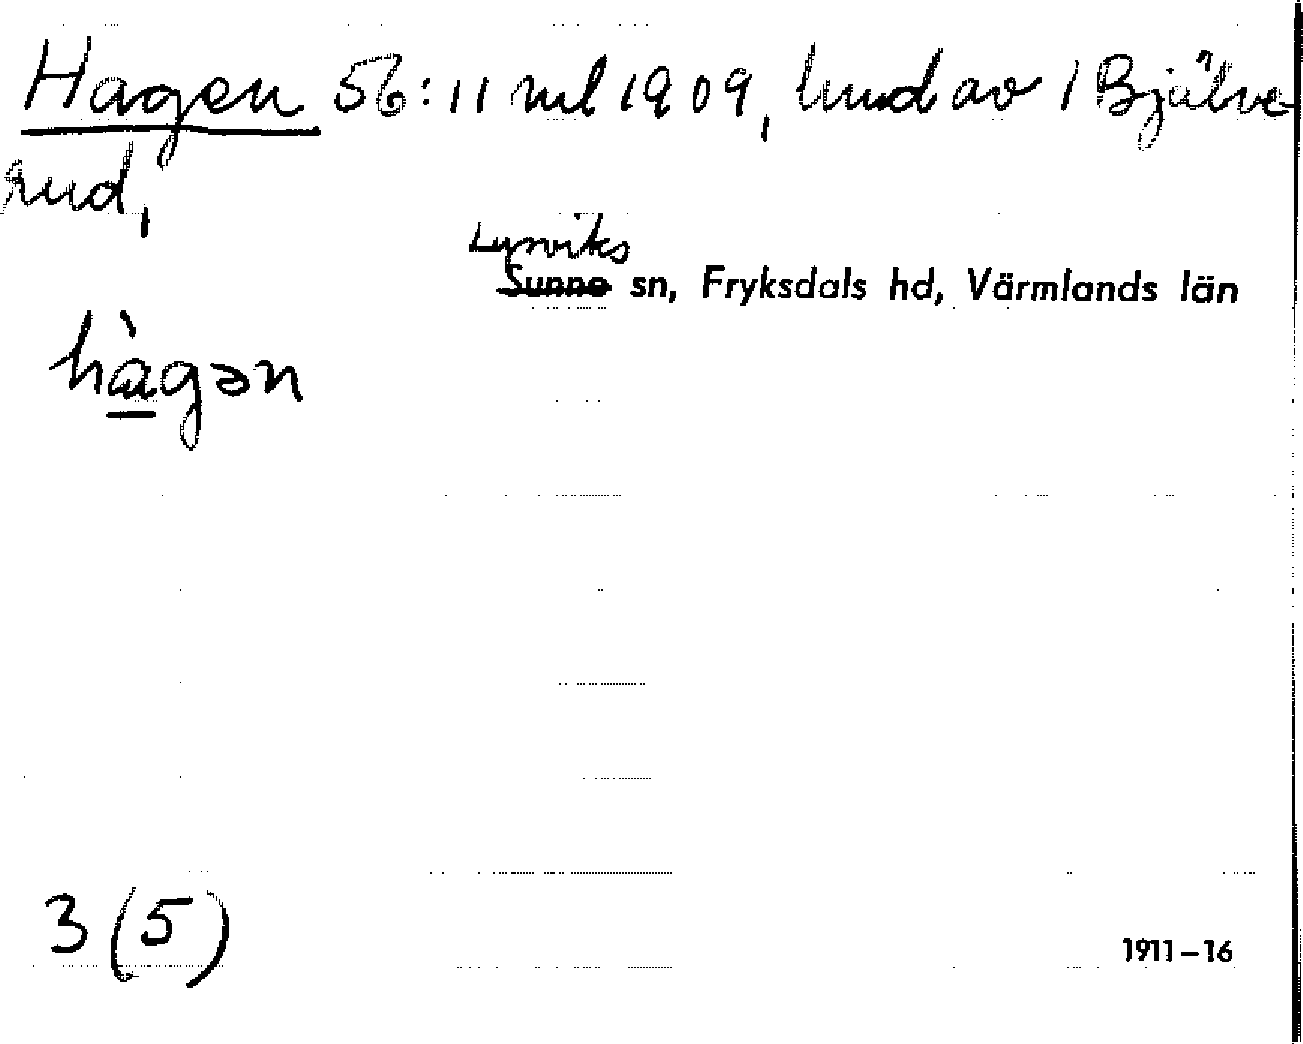 Hagen 56:11 ml 1909, lund av 1 Bjälve
rud,
Lysviks
Sunne sn, Fryksdals hd, Värmlands län
hàgən
3 (5)
1911–16